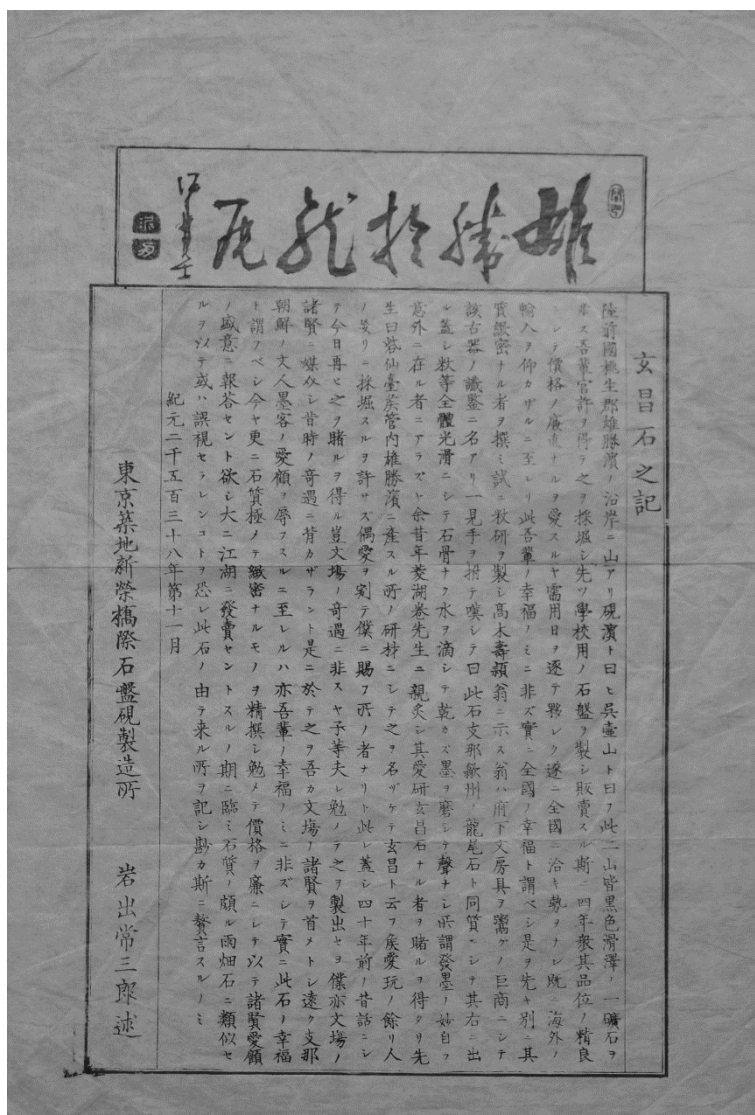 雄勝於龍尾
玄昌石之記
陸前國桃生郡雄勝濱ノ沿岸ニ山アリ硯濱ト曰ヒ呉壷山ト曰フ此二山皆黒色滑澤ノ一礦石ヲ
産ス吾輩官許ヲ得テ之ヲ採堀シ先ツ學校用ノ石盤ヲ製シ販賣スル斯ニ四年衆其品位ノ精良
ニシテ價格ノ廉直ナルヲ愛スルヤ需用日ヲ逐テ夥シク遂ニ全國ニ洽キ勢ヲナシ既ニ海外ノ
輸入ヲ仰カザルニ至レリ此吾輩ノ幸福ノミニ非ズ實ニ全國ノ幸福ト謂ベシ是ヨ先キ別ニ其
質緻密ナル者ヲ撰ミ試ニ数研ヲ製シ髙木壽頴翁ニ示ス翁ハ府下文房具ヲ鬻クノ巨商ニシテ
該古器ノ識鑒ニ名アリ一見手ヲ拊テ嘆シテ曰此石支那歙州ノ龍尾石ト同質ニシテ其右ニ出
ル蓋シ数等全體光滑ニシテ石骨ナク水ヲ滴シテ乾カズ墨ヲ磨シテ聲ナシ所謂發墨ノ妙自ラ
意外ニ在ル者ニアラズヤ余昔年菱湖巻先生ニ親炙シ其愛研玄昌石ナル者ヲ睹ルヲ得タリ先
生曰嵜仙臺矦管内雄勝濱ニ産スル所ノ研材ニシテ之ヲ名ヅケテ玄昌ト云フ矦愛玩ノ餘リ人
ノ妄リニ採堀スルヲ許サズ偶愛ヲ割テ僕ニ賜フ所ノ者ナリト此レ蓋シ四十年前ノ昔話ニシ
テ今日再ヒ之ヲ睹ルヲ得ル豈文塲ノ奇遇ニ非スヤ子等夫レ勉ノテ之ヲ製出セヨ僕亦文塲ノ
諸賢ニ媒介シ昔時ノ奇遇ニ背カザラント是ニ於テ之ヲ吾カ文塲ノ諸賢ヲ首メトシ遠ク支那
朝鮮ノ文人墨客ノ愛顧ヲ辱フスルニ至レルハ亦吾輩ノ幸福ノミニ非ズシテ實ニ此石ノ幸福
ト謂フベシ今ヤ更ニ石質極メテ緻密ナルモノヲ精撰シ勉メテ價格ヲ廉ニシテ以テ諸賢愛顧
ノ盛意ニ報荅セント欲シ大ニ江湖ニ發賣セントスルノ期ニ臨ミ石質ノ頗ル雨畑石ニ類似セ
ルヲ以テ或ハ誤視セラレンコトヲ恐レ此石ノ由テ来ル所ヲ記シ尠カ斯ニ贅言スルノミ
紀元二千五百三十八年第十一月
東京築地新榮橋際石盤硯製造所 岩出常三郎述